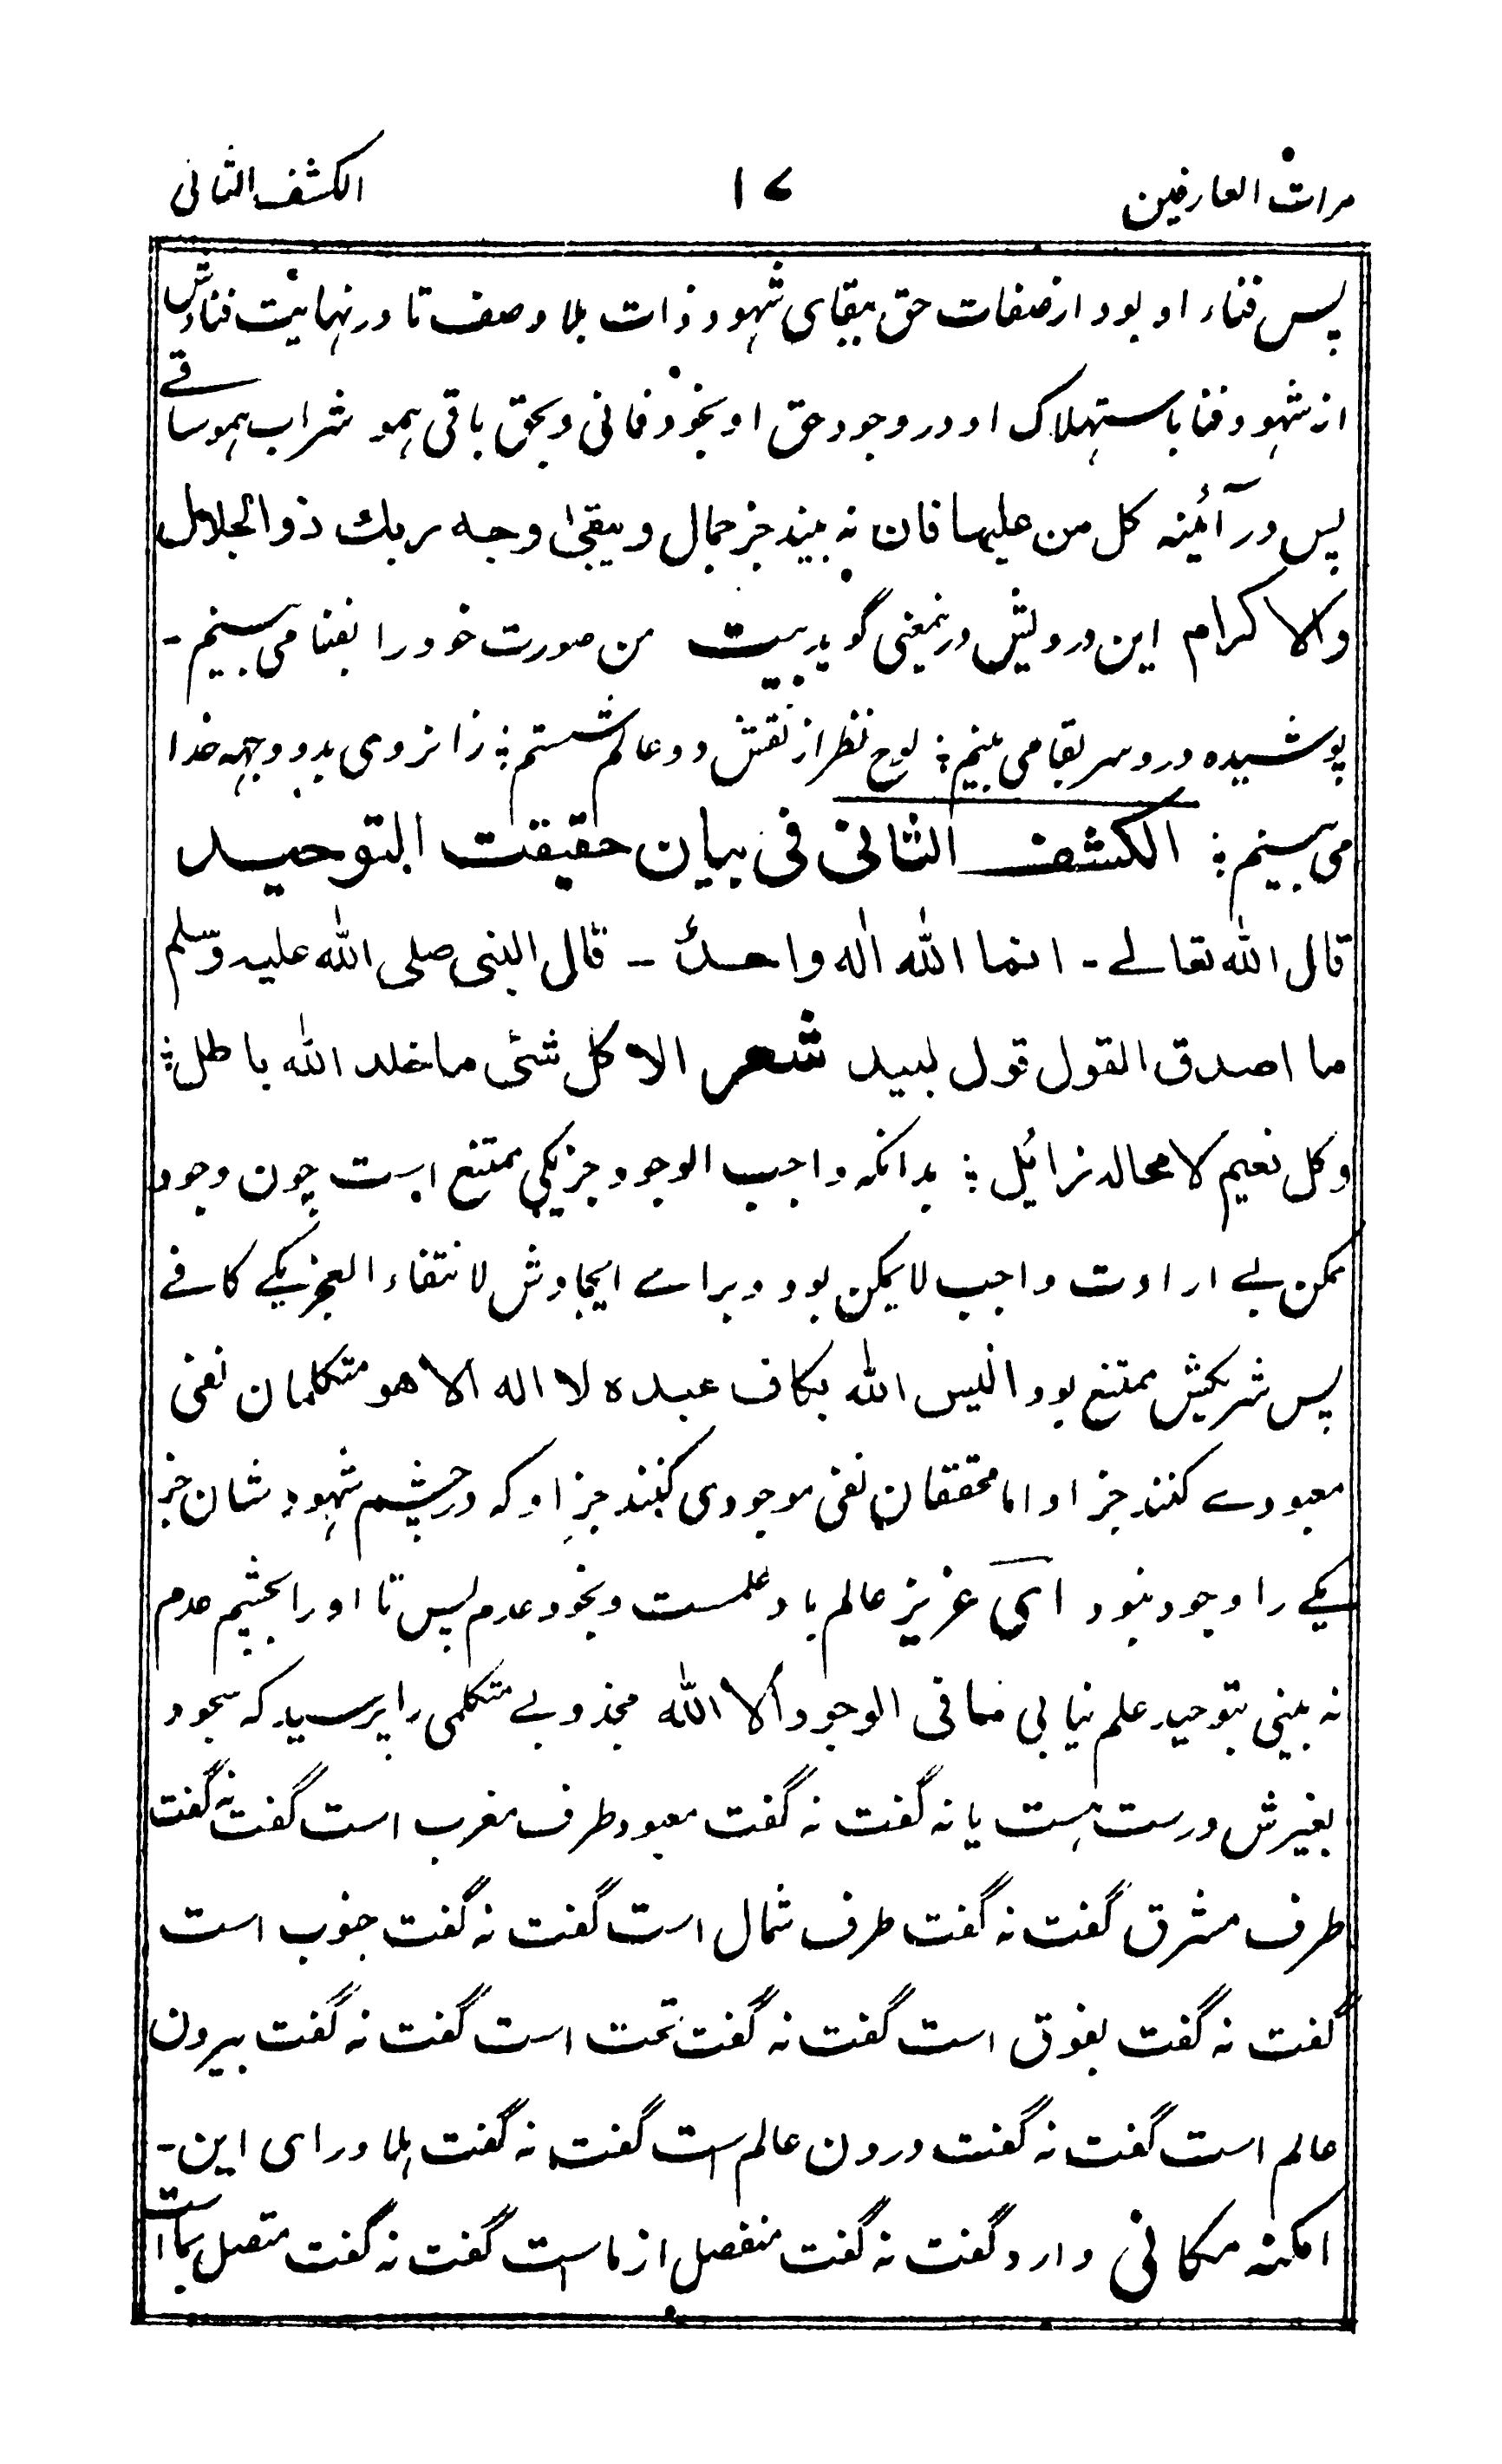 مرات العارفین ۱۷ الکشف الثانی
پس فناء او بود از صفات حق ببقای شهود ذات بلا وصف تا در نهایت فناءش
از شهود فنا باستهلاک او در وجود حق او بخود فانی و بحق باقی همو شراب همو ساقے
پس در آئینه کل من علیها فان نه بیند جز جمال ویبقیٰ وجه ربك ذوالجلال
والاکرام این درویش درینمعنی گوید بیت من صورت خود را بفنا می بینم -
پوشیده درو سر بقا می بینم ؛ لوح نظر از نقش دو عالم شستم ؛ زانروی بدو وجهه خدا
می بینم ؛ الکشف الثانی فی بیان حقیقت التوحید
قال الله تعالے - انما الله اله واحدٌ - قال النبی صلی الله علیه وسلم
ما اصدق القول قول لبید شعر الا کل شئی ماخلد الله باطل ؛
وکل نعیم لامحاله زائیل ؛ بدانکه واجب الوجود جز یکی ممتنع است چون وجود
ممکن بے ارادت واجب لایمکن بود و براے ایجادش لانتفاء العجز یکے کافے
پس شریکش ممتنع بود الیس الله بکاف عبده لا اله الا هو متکلمان نفی
معبودے کنند جز او اما محققان نفی موجودی کنند جز او که در چشم شهود شان جز
یکے را وجود نبود ای عزیز عالم باو علمست و بخود عدم پس تا او را بچشم عدم
نه بینی بتوحید علم نیابی فما فی الوجود الا الله مجذوبے متکلمی را پرسید که سجود
بغیرش درست هست یا نه گفت نه گفت معبود طرف مغرب است گفت نه گفت
طرف مشرق گفت نه گفت طرف شمال است گفت نه گفت جنوب است
گفت نه گفت بفوق است گفت نه گفت تحت است گفت نه گفت بیرون
عالم است گفت نه گفت درون عالم است گفت نه گفت بلا ورای این -
امکنه مکانی دارد گفت نه گفت منفصل از ماست گفت نه گفت متصل بما است